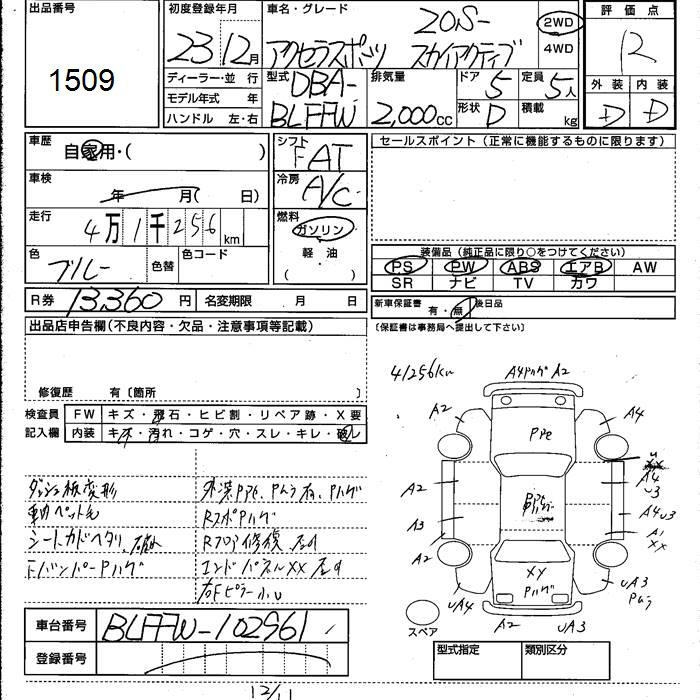 出品番号
1509
初度登録年月
23 12月
車名・グレード
20S-
アクセラスポーツ スカイアクティブ
2WD
4WD
評価点
R
外装 内装
D D
ディーラー・並行
モデル年式 年
ハンドル 左・右
型式
DBA-
BLFFW
排気量
2,000cc
ドア 5
形状 D
定員 5人
積載 kg
車歴
自家用・( )
車検
年 月( 日)
走行
4万1千256km
色
ブルー
色替
色コード
シフト
FAT
冷房
A/C
燃料
ガソリン
軽・油
( )
セールスポイント(正常に機能するものに限ります)
装備品(純正品に限り○をつけてください)
PS PW ABS エアB AW
SR ナビ TV カワ
R券 13,360円
名変期限 月 日
新車保証書 有・無 後日品
(保証書は事務局へ提出して下さい)
出品店申告欄(不良内容・欠品・注意事項等記載)
修復歴 有〔箇所 〕
検査員
記入欄
FW キズ・飛石・ヒビ割・リペア跡・X要
内装 キズ・汚れ・コゲ・穴・スレ・キレ・破レ
ダッシュ板変形
シートカドヘタリ
Fバンパーアハング
外装PPe、Pムラ有、Pハゲ
RスポPハゲ
Rフロア修復
エンドパネルXX
右Fピラー小U
41256km
A4 Pハゲ A2
A2
A4
PPe
A2
A3
A2
A4
U3
A4 U3
A1
XX
XY
Pハゲ
UA4
UA3
Pムラ
A2
UA3
スペア
車台番号 BLFFW-102961
登録番号
型式指定 類別区分
12/11